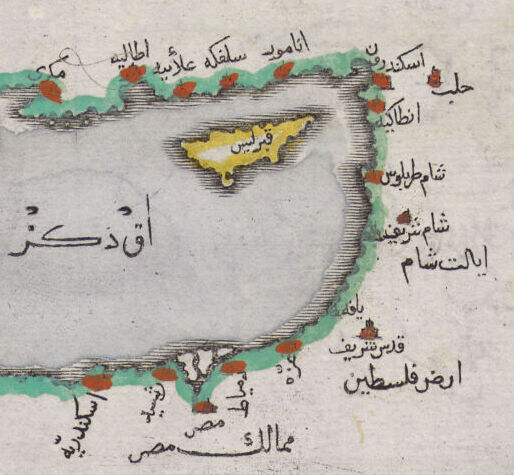 مكرى
اطاليه
علائيه
سلفكه
انامور
اسكندرون
حلب
انطاكيه
قبرليس
شام طربلوس
شام شريف
ايالت شام
آق دكز
يافه
قدس شريف
ارض فلسطين
غزه
دمياط
رشيد
اسكندريه
مصر
ممالك مصر